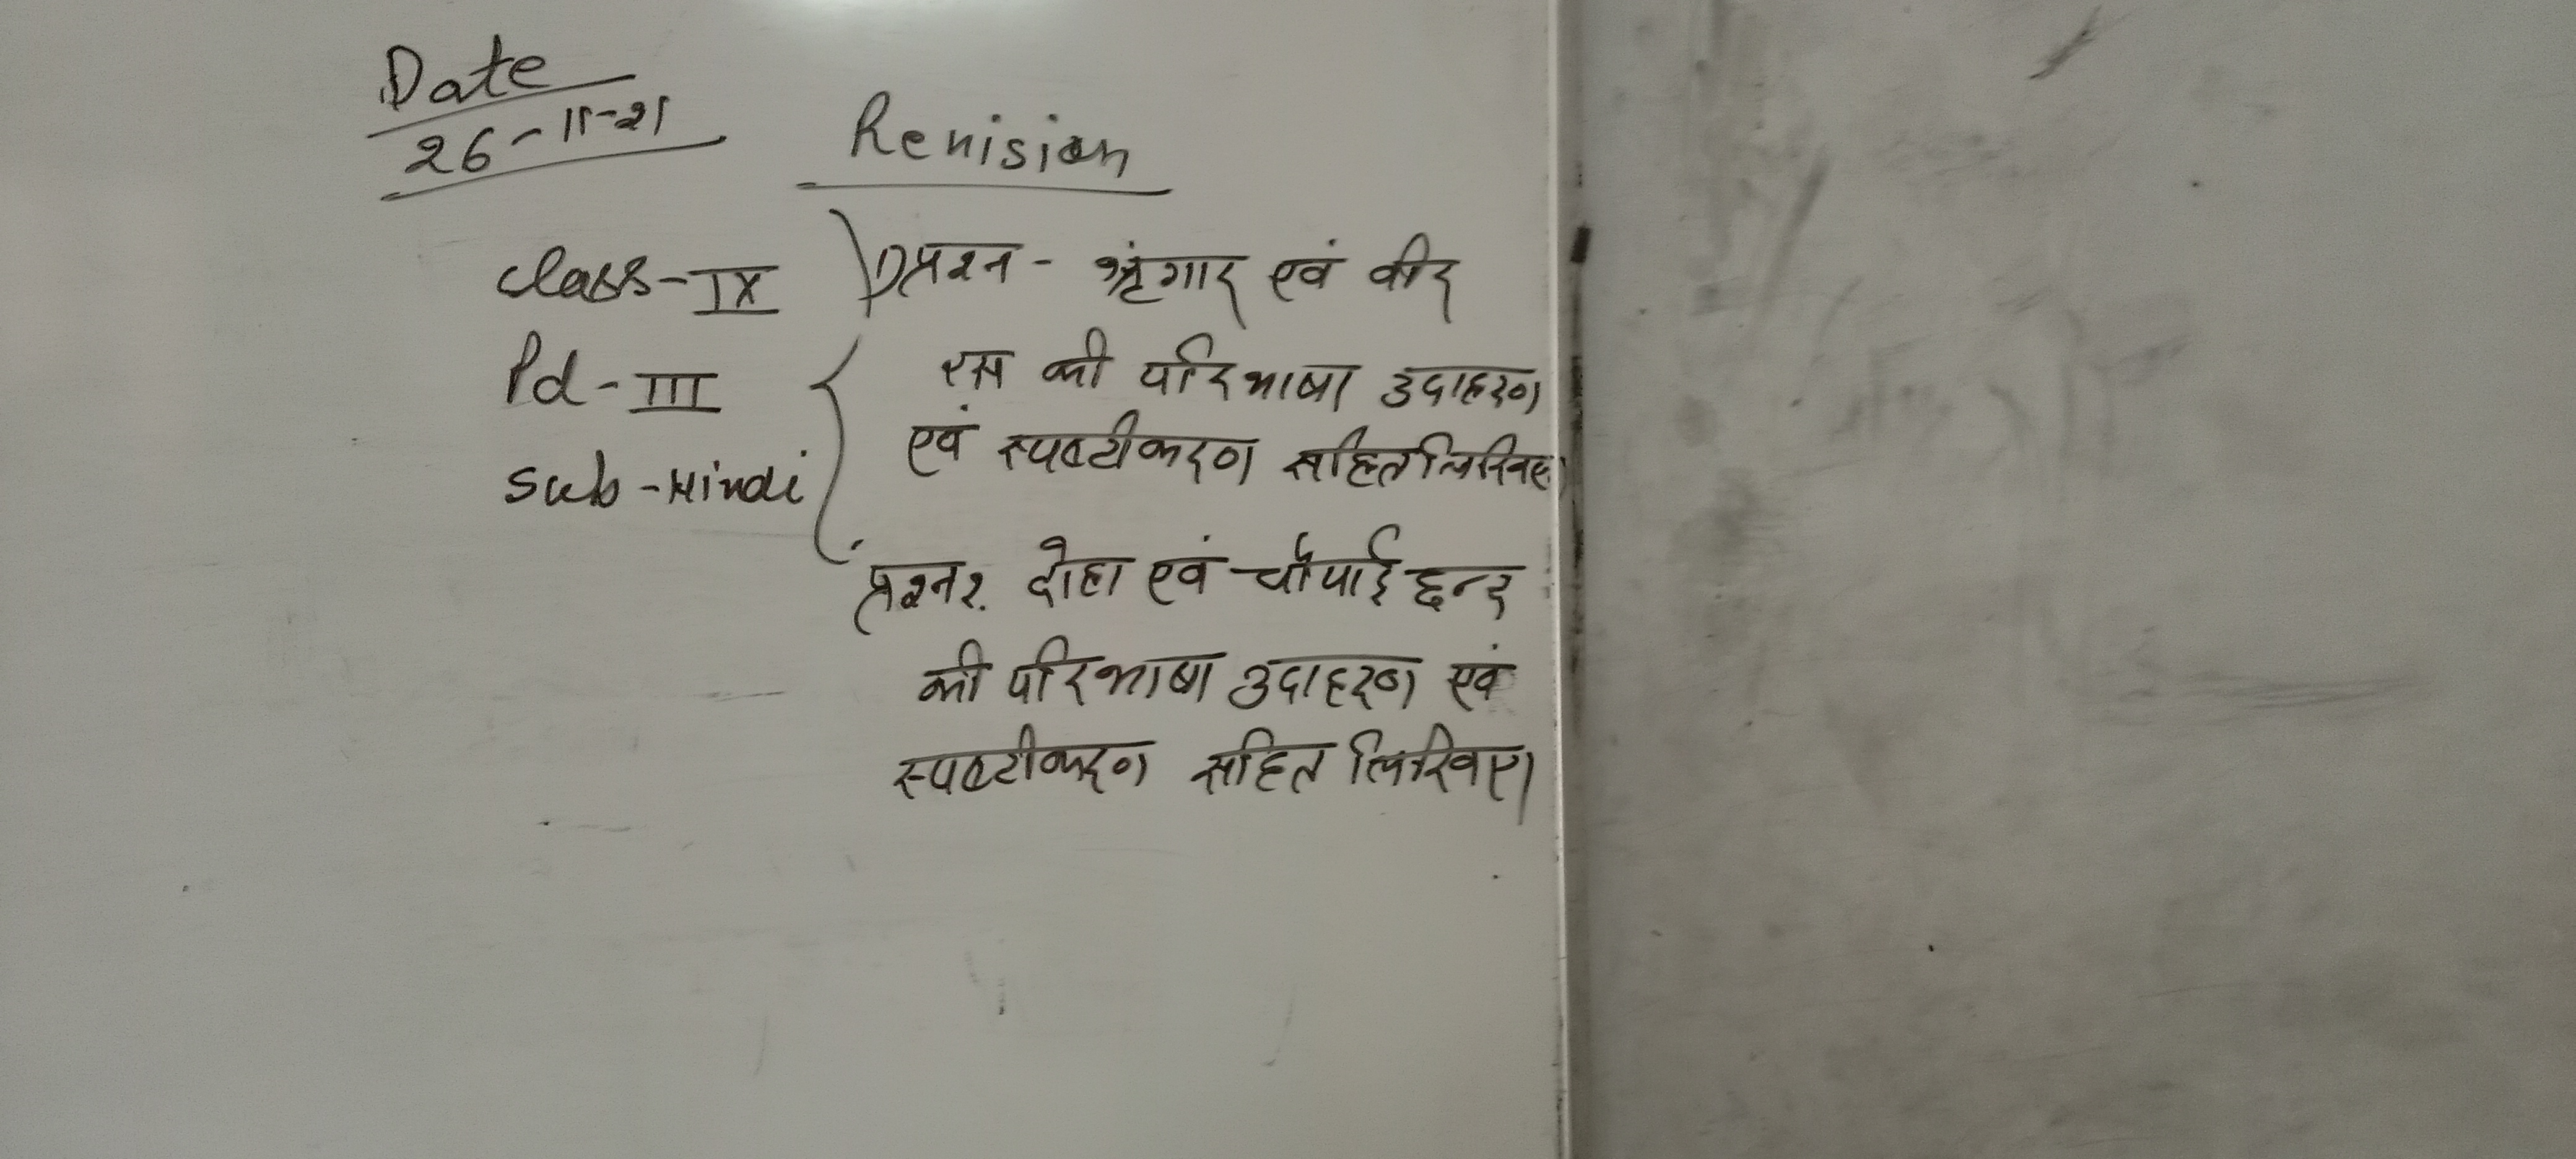 Date
26-11-21
Revision
Class-IX
Pd-III
Sub-Hindi
प्रश्न- श्रृंगार एवं वीर
रस की परिभाषा उदाहरण
एवं स्पष्टीकरण सहित लिखिए।
प्रश्न२. दोहा एवं चौपाई छन्द
की परिभाषा उदाहरण एवं
स्पष्टीकरण सहित लिखिए।